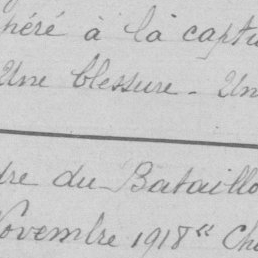 héré à la captu
Une blessure - Un
dre du Bataillo
Novembre 1918" Ch